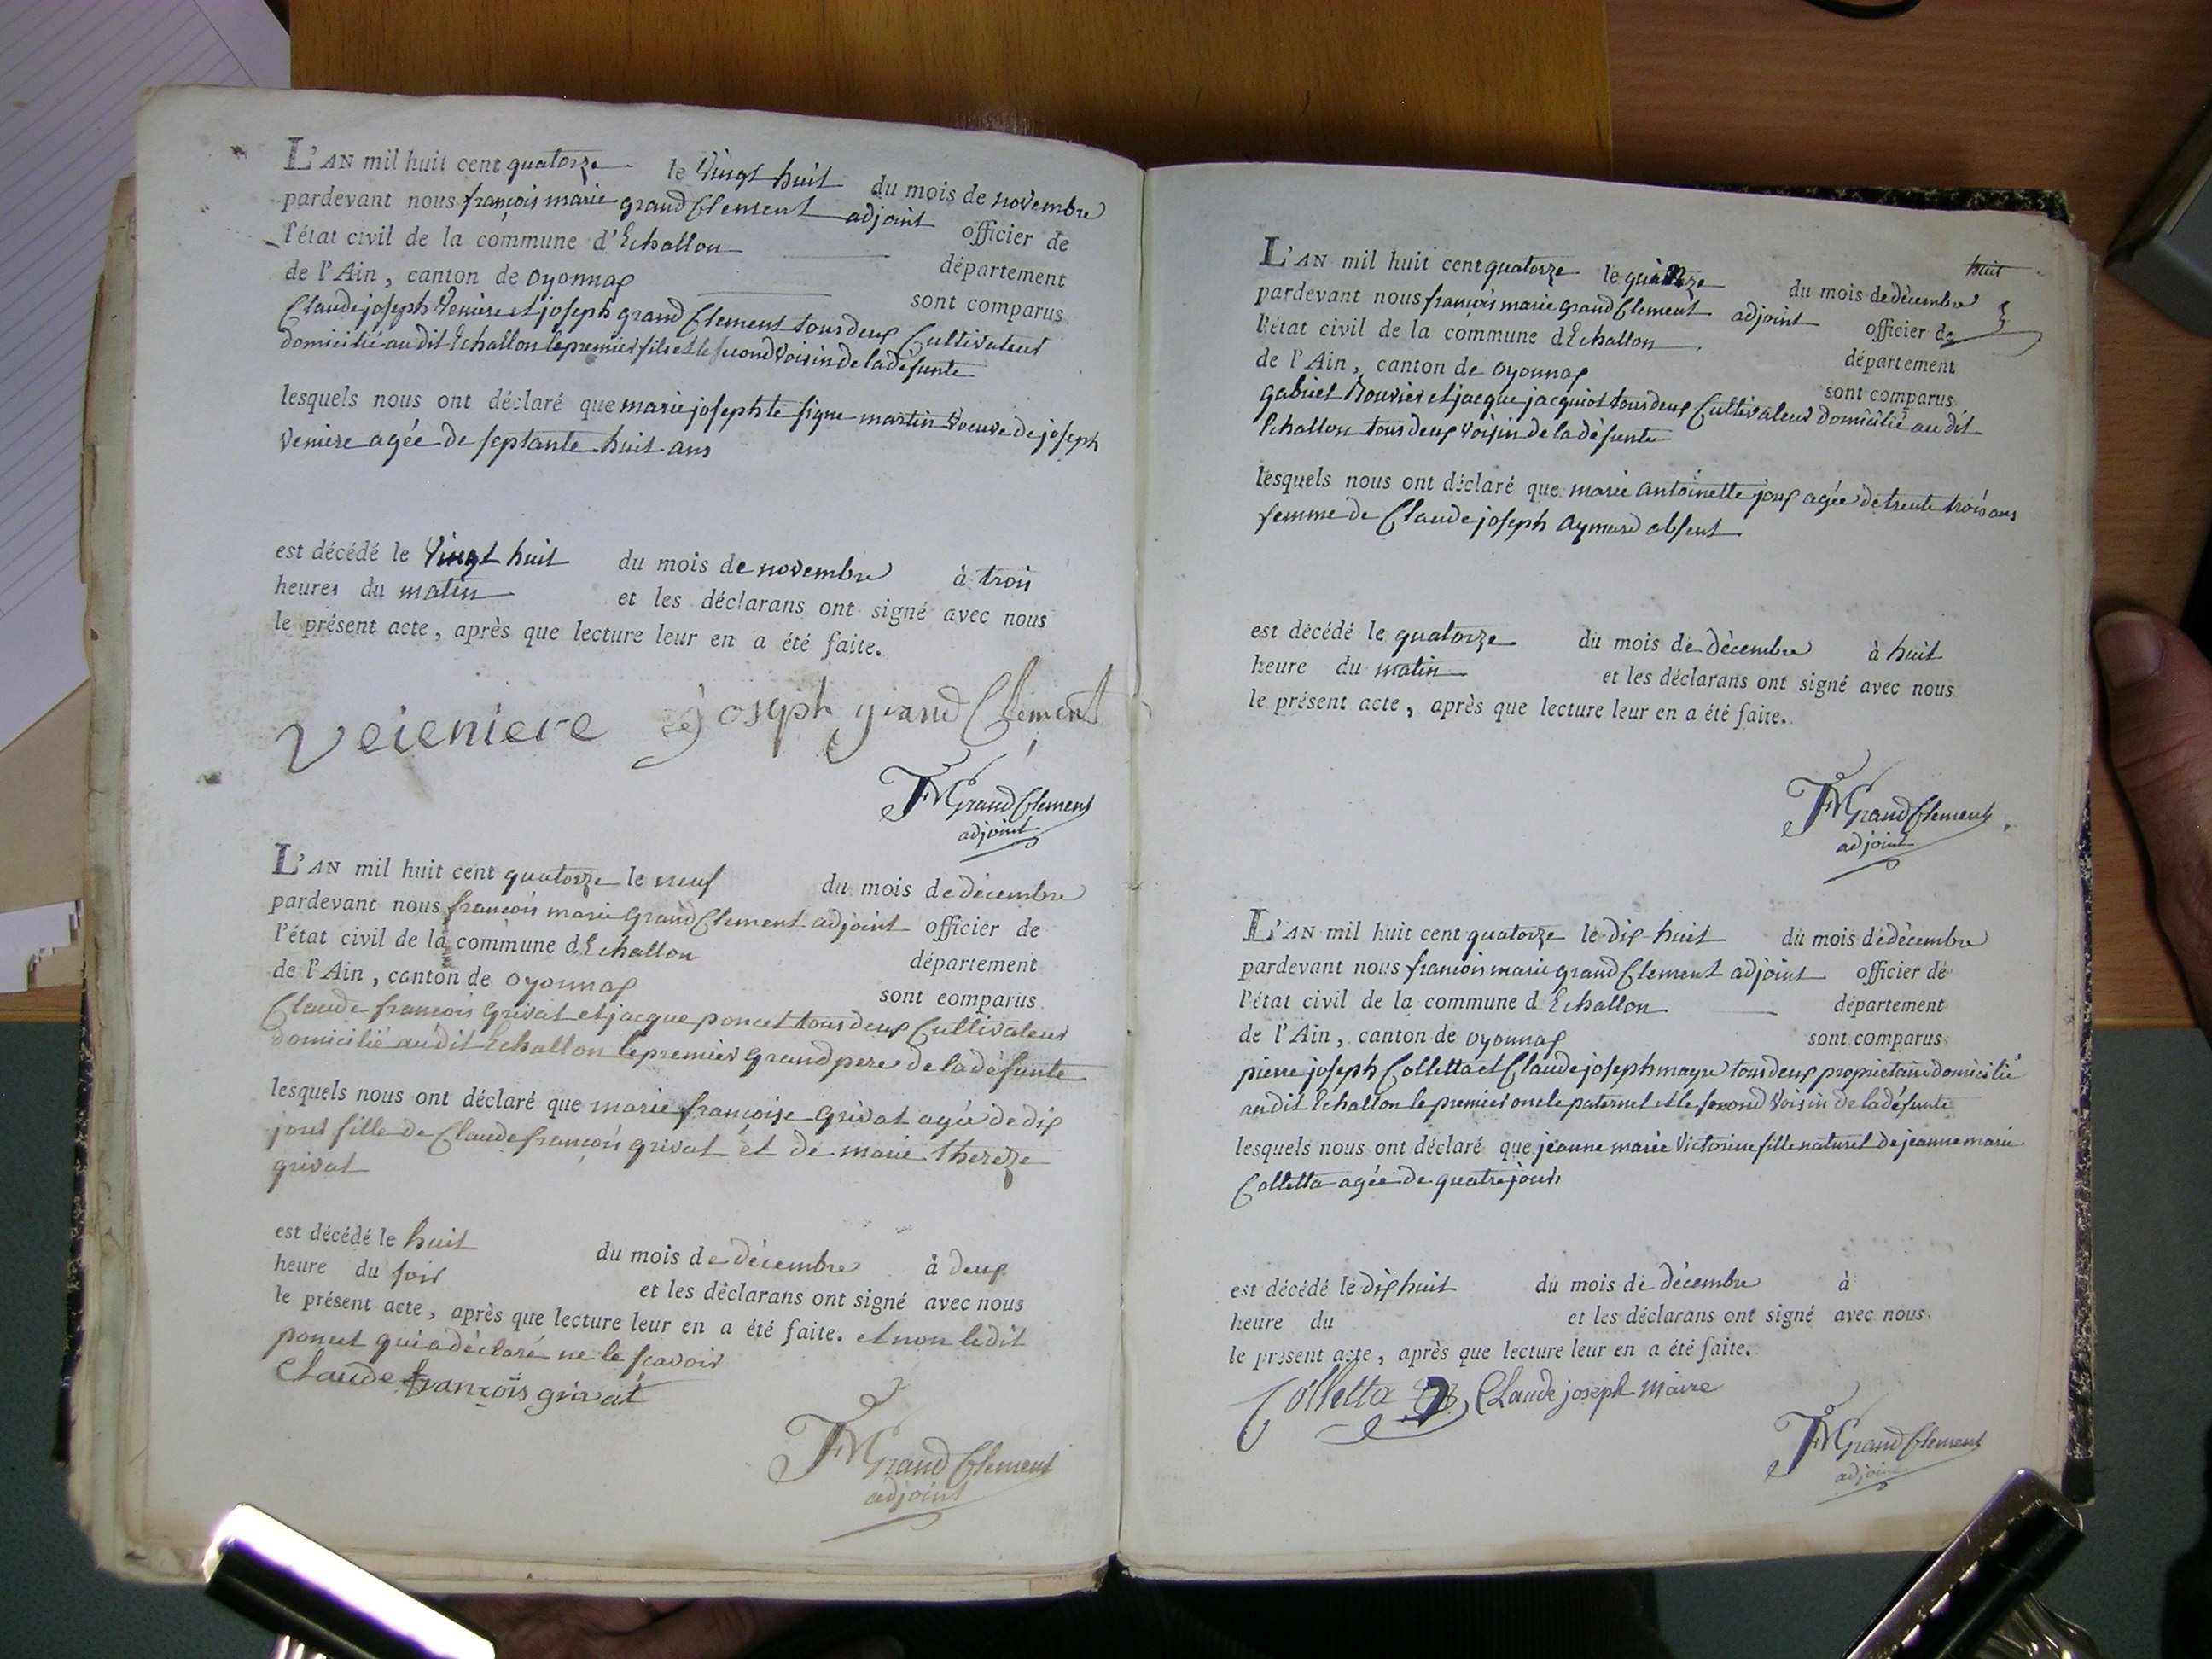 L'AN mil huit cent quatorze le Vingt huit du mois de novembre
pardevant nous françois marie grand Clement adjoint officier de
l'état civil de la commune d'Echallon département
de l'Ain, canton de oyonnax sont comparus
Claude joseph Veniere et joseph grand Clement tous deux Cultivateurs
domicilié au dit Echallon le premier fils et le second Voisin de la défunte
lesquels nous ont déclaré que marie josephte figue martin Voeuve de joseph
Veniere agée de septante huit ans
est décédé le Vingt huit du mois de novembre à trois
heures du matin et les déclarans ont signé avec nous
le présent acte, après que lecture leur en a été faite.
Veieniere joseph grand Clement
FMGrand Clement
adjoint
L'AN mil huit cent quatorze le neuf du mois de décembre
pardevant nous françois marie Grand Clement adjoint officier de
l'état civil de la commune d'Echallon département
de l'Ain, canton de oyonnax sont comparus
Claude françois Grivat et jacque poncet tous deux Cultivateurs
domicilié audit Echallon le premier Grand pere de la défunte
lesquels nous ont déclaré que marie françoise Grivat agée de dix
jours fille de Claude françois grivat et de marie thereze
grivat
est décédé le huit du mois de décembre à deux
heure du soir et les déclarans ont signé avec nous
le présent acte, après que lecture leur en a été faite. et non ledit
poncet qui a déclaré ne le sçavoir
Claude françois grivat
FMGrand Clement
adjoint
huit
L'AN mil huit cent quatorze le quinze du mois de décembre
pardevant nous françois marie grand Clement adjoint officier de
l'état civil de la commune d'Echallon département
de l'Ain, canton de oyonnax sont comparus
gabriel Bouvier et jacque jacquiot tous deux Cultivateurs domicilié au dit
Echallon tous deux Voisin de la défunte
lesquels nous ont déclaré que marie Antoinette joux agée de trente trois ans
femme de Claude joseph Aymard absent
est décédé le quatorze du mois de décembre à huit
heure du matin et les déclarans ont signé avec nous
le présent acte, après que lecture leur en a été faite.
FMGrand Clement
adjoint
L'AN mil huit cent quatorze le dix huit du mois de décembre
pardevant nous françois marie grand Clement adjoint officier de
l'état civil de la commune d'Echallon département
de l'Ain, canton de oyonnax sont comparus
pierre joseph Colletta et Claude joseph mayre tous deux propriétaire domicilié
au dit Echallon le premier oncle paternel et le second Voisin de la défunte
lesquels nous ont déclaré que jeanne marie Victorine fille naturel de jeanne marie
Colletta agée de quatre jours
est décédé le dix huit du mois de décembre à
heure du et les déclarans ont signé avec nous
le présent acte, après que lecture leur en a été faite.
Colletta Claude joseph Maire
FMGrand Clement
adjoint